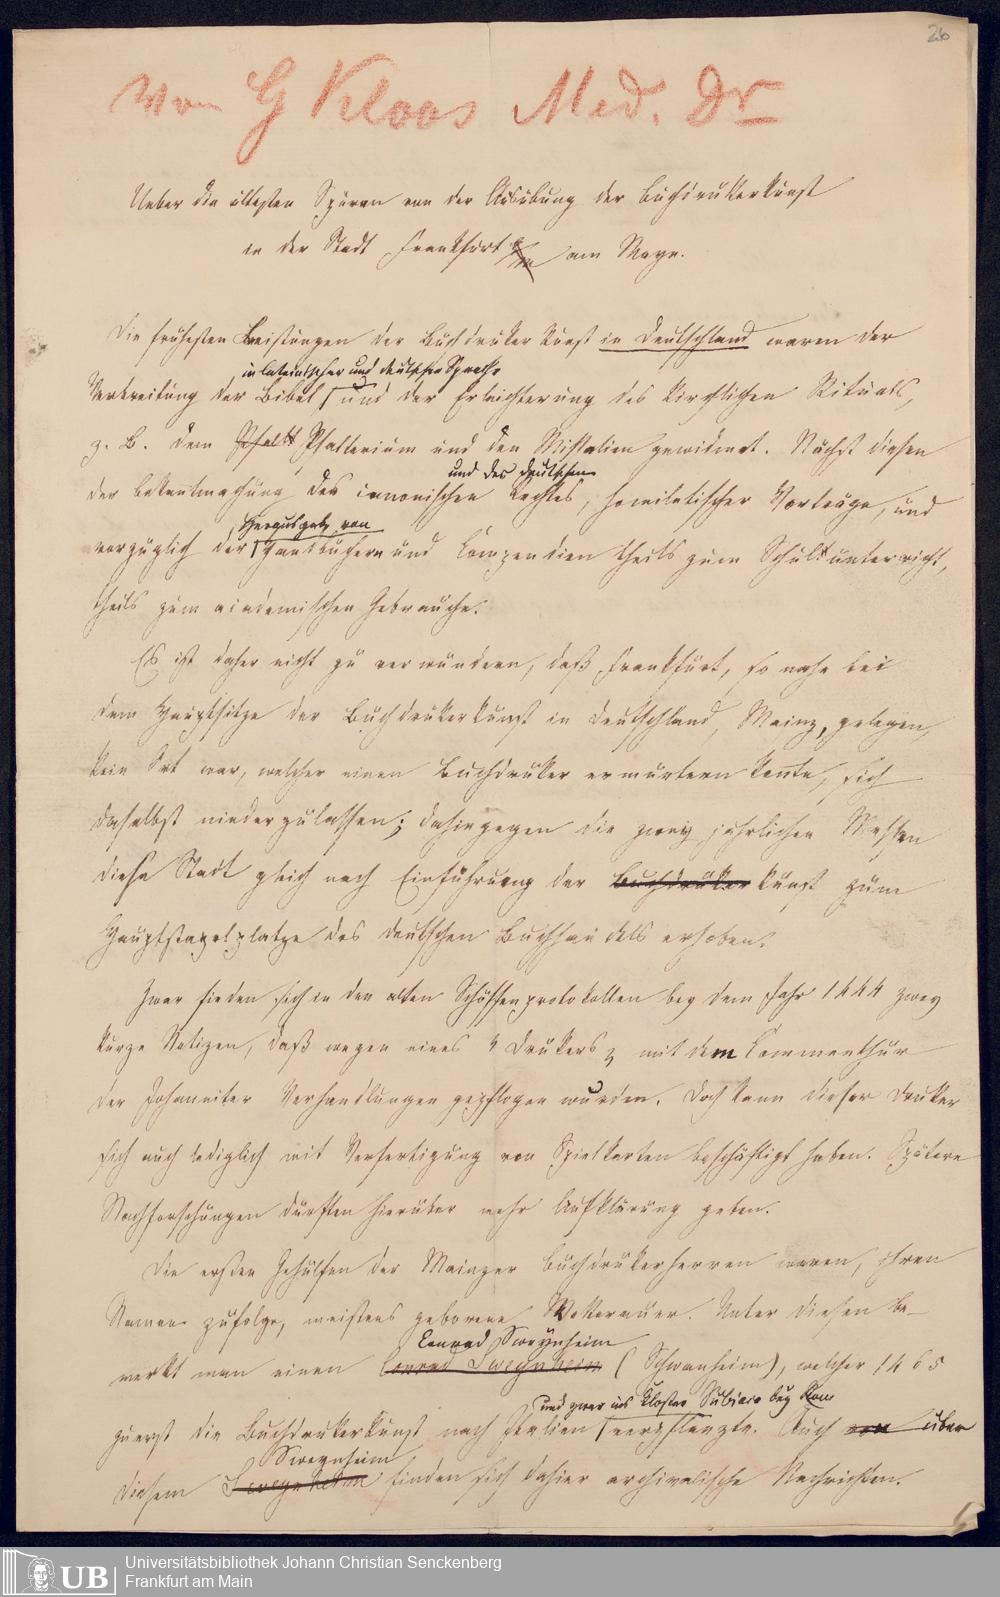 26
Von G Kloss Med. Dr
Ueber die ältesten Spuren von der Ausübung der Buchdrukerkunst
in der Stadt Frankfurt am Mayn.
Die frühesten Leistungen der Buchdruker Kunst in Deutschland waren der
in lateinischer und deutscher Sprache
Verbreitung der Bibel und der Erleichterung des kirchlichen Rituals,
z. B. dem Psalt Psalterium und den Missalien gewidmet. Nächst diesen
und des deutschen
der Bekantmachung des canonischen Rechtes, homiletischer Vorträge, und
Herausgabe von
vorzüglich der Handbüchern und Compendien theils zum Schulunterricht,
theils zum academischen Gebrauche.
Es ist daher nicht zu verwundern, daß Frankfurt, so nahe bei
dem Hauptsitze der Buchdrukerkunst in Deutschland, Mainz, gelegen,
kein Ort war, welcher einen Buchdruker ermuntern konte, sich
daselbst niederzulassen; dahingegen die zwey jährlichen Messen
diese Stadt gleich nach Einführung der Buchdruker Kunst zum
Hauptstapelplatze des deutschen Buchhandels erhoben.
Zwar finden sich in den alten Schöffenprotokollen bey dem Jahr 1444 zwey
kurze Notizen, daß wegen eines Drukers mit dem Commenthur
der Johanniter Verhandlungen gepflogen wurden. Doch kann dieser Druker
sich auch lediglich mit Verfertigung von Spielkarten beschäftigt haben. Spätere
Nachforschungen dürften hierüber mehr Aufklärung geben.
Die ersten Gehülfen der Mainzer Buchdrukerherren waren, ihren
Namen zufolge, meistens geborene Wetterauer. Unter diesen be-
Conrad Sweynheim
merkt man einen Conrad Sweynheim (Schwanheim), welcher 1465
und zwar ins Kloster Subiaco bey Rom
zuerst die Buchdrukerkunst nach Italien verpflanzte. Auch von über
Sweynheim
diesem Sweynheim finden sich dahier archivalische Nachrichten.
UB
Universitätsbibliothek Johann Christian Senckenberg
Frankfurt am Main